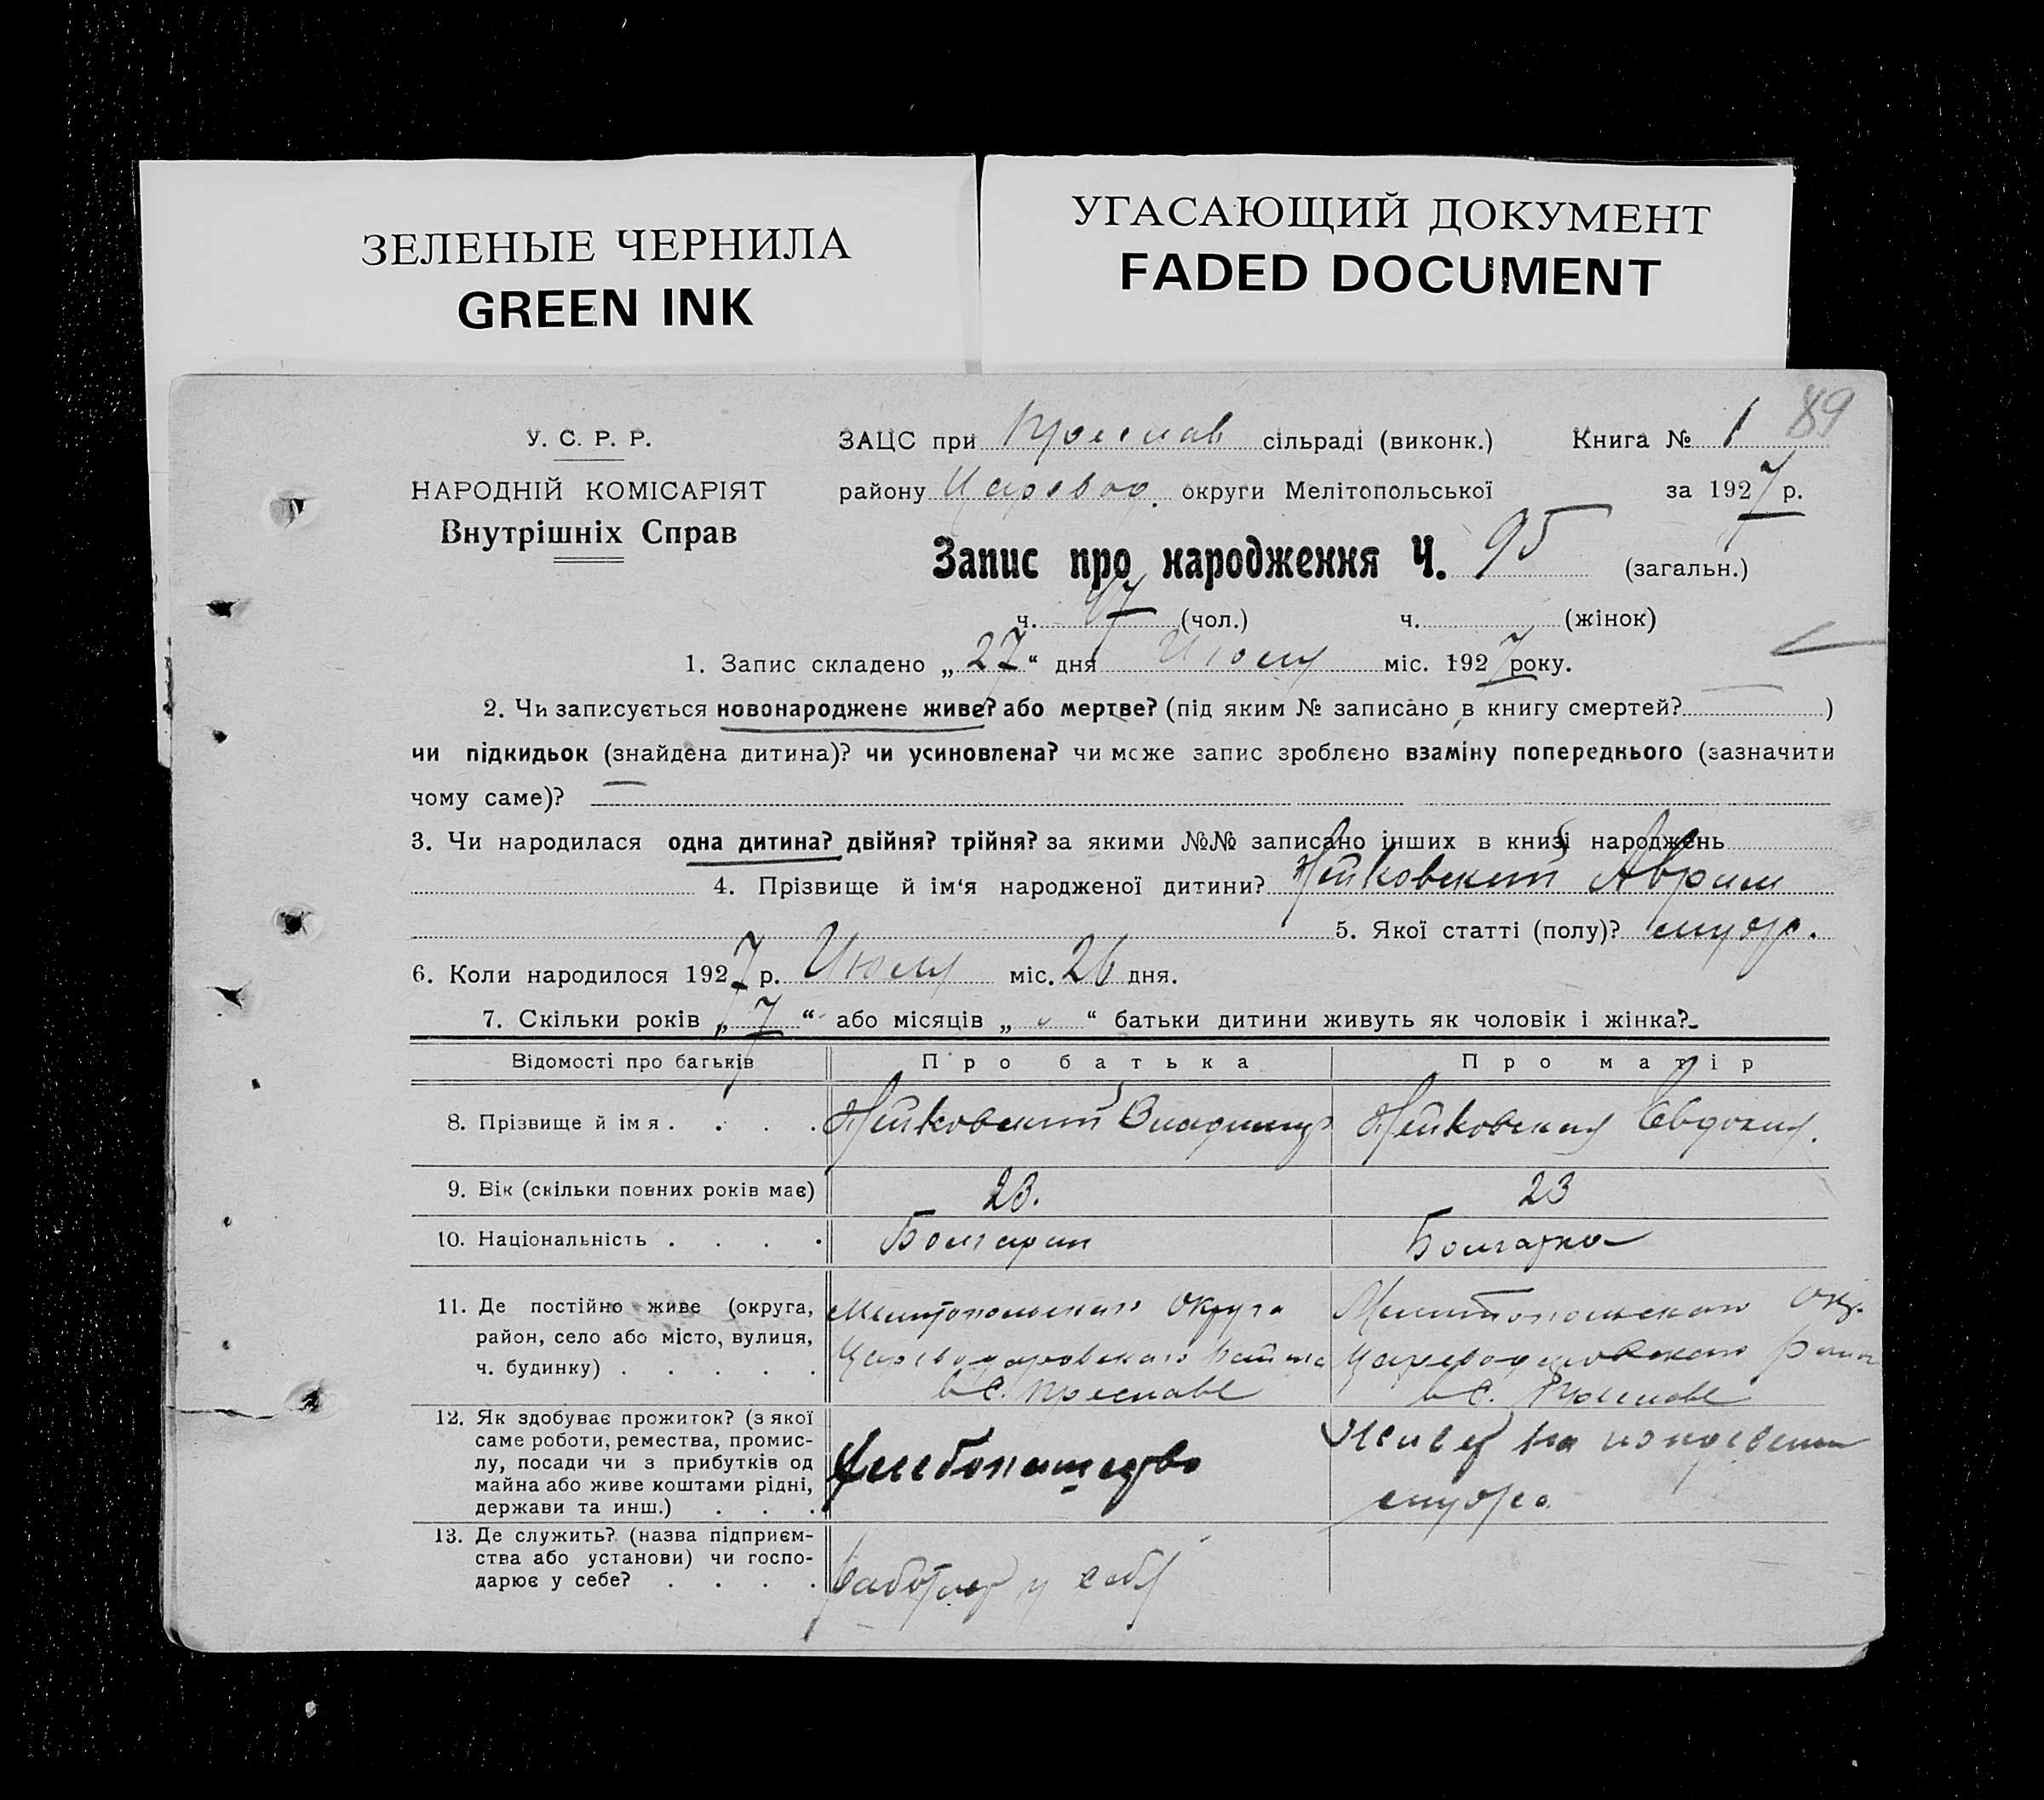 ЗЕЛЕНЫЕ ЧЕРНИЛА
GREEN INK
УГАСАЮЩИЙ ДОКУМЕНТ
FADED DOCUMENT
89
У. С. Р. Р.
НАРОДНІЙ КОМІСАРІЯТ
Внутрішніх Справ
ЗАЦС при Преслав сільраді (виконк.) Книга № 1
району Царевод. округи Мелітопольської за 1927 р.
Запис про народження Ч. 95 (загальн.)
ч. 47 (чол.) ч. (жінок)
1. Запис складено „27“ дня Июля міс. 1927 року.
2. Чи записується новонароджене живе? або мертве? (під яким № записано в книгу смертей? )
чи підкидьок (знайдена дитина)? чи усиновлена? чи може запис зроблено взаміну попереднього (зазначити
чому саме)? —
3. Чи народилася одна дитина? двійня? трійня? за якими №№ записано інших в книзі народжень
4. Прізвище й ім‘я народженої дитини? Нейковский Аврам
5. Якої статті (полу)? муж.
6. Коли народилося 1927 р. Июля міс. 26 дня.
7. Скільки років „7“ або місяців „ “ батьки дитини живуть як чоловік і жінка?
Відомості про батьків Про батька Про матір
8. Прізвище й ім я . . . . Нейковский Владимир Нейковская Евдокия.
9. Вік (скільки повних років має) 23. 23
10. Національність . . . . Болгарин Болгарка
11. Де постійно живе (округа, Мелитопольского округа Мелитопольского Окр.
район, село або місто, вулиця, Цареводаровского района Цареводаровского района
ч. будинку) . . . . . в с. Преславе в с. Преславе
12. Як здобуває прожиток? (з якої
саме роботи, ремества, промис-
лу, посади чи з прибутків од
майна або живе коштами рідні,
держави та инш.) . . . Хлебопашество Живет на иждевении
мужа
13. Де служить? (назва підприєм-
ства або установи) чи госпо-
дарює у себе? . . . . работает у себя